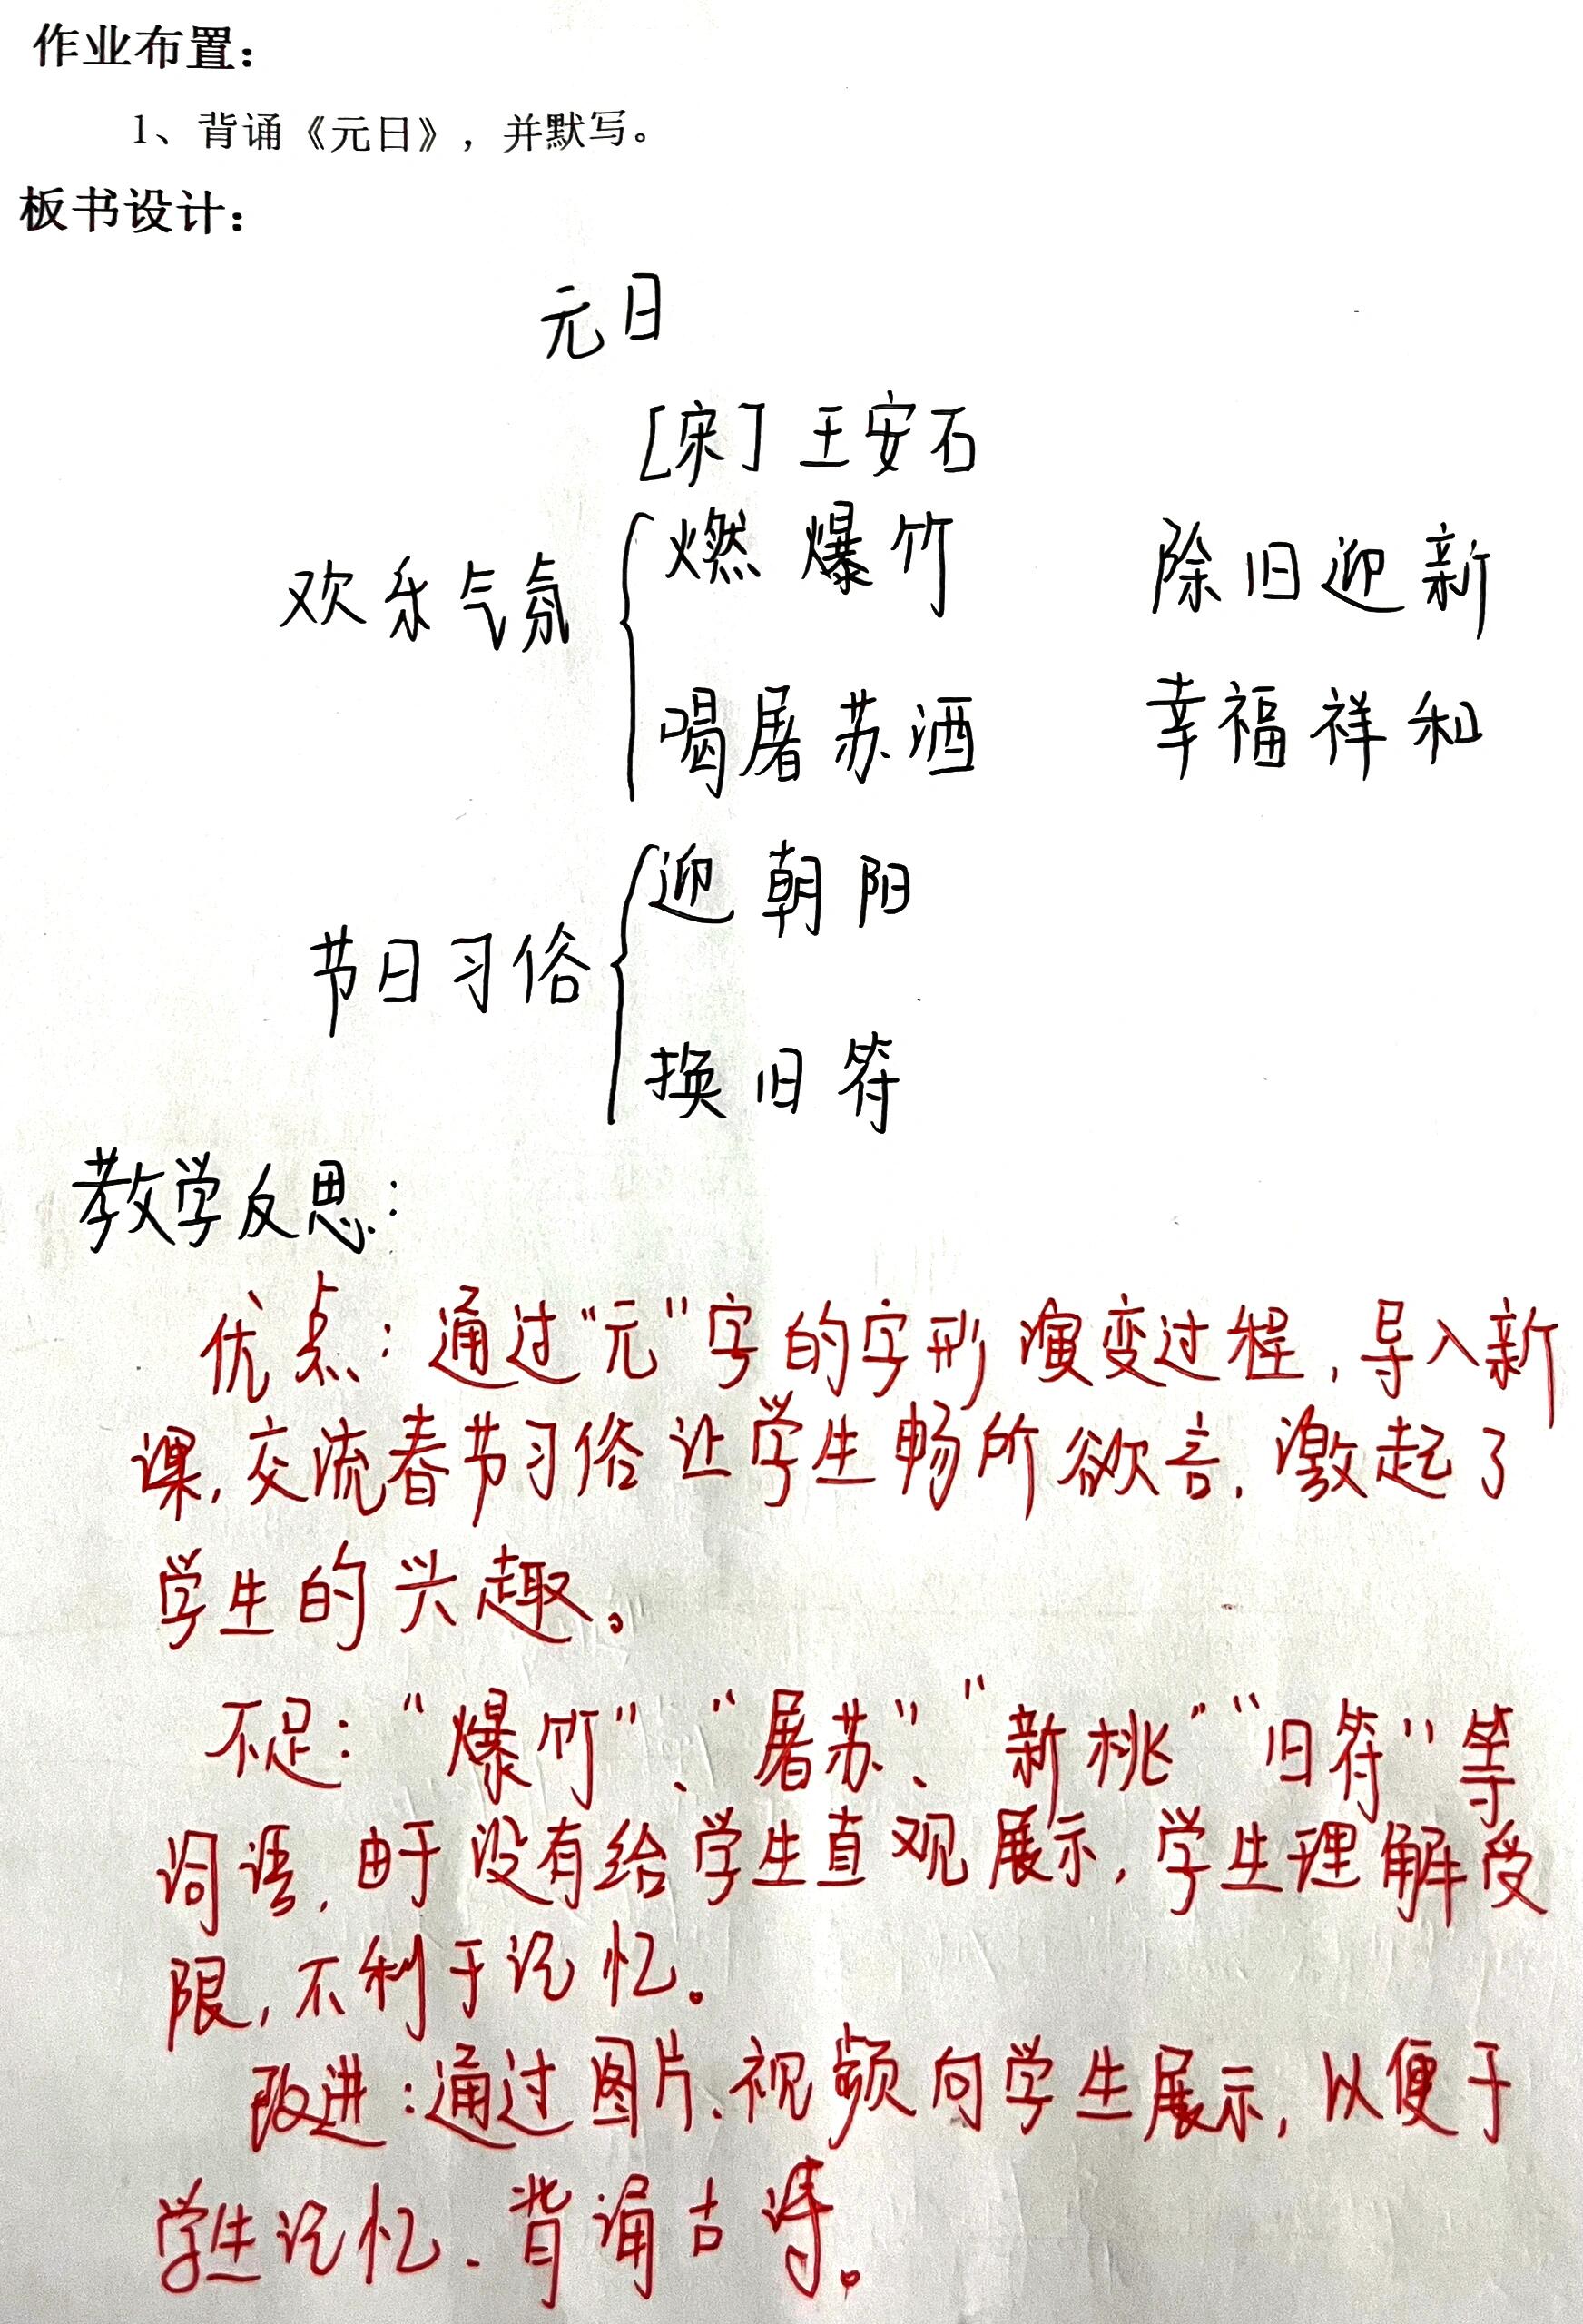 作业布置：
1、背诵《元日》，并默写。
板书设计：
元日
[宋] 王安石
欢乐气氛 燃爆竹 除旧迎新
喝屠苏酒 幸福祥和
节日习俗 迎朝阳
换旧符
教学反思：
优点：通过“元”字的字形演变过程，导入新
课，交流春节习俗让学生畅所欲言，激起了
学生的兴趣。
不足：“爆竹”、“屠苏”、“新桃”“旧符”等
词语，由于没有给学生直观展示，学生理解受
限，不利于记忆。
改进：通过图片、视频向学生展示，以便于
学生记忆、背诵古诗。